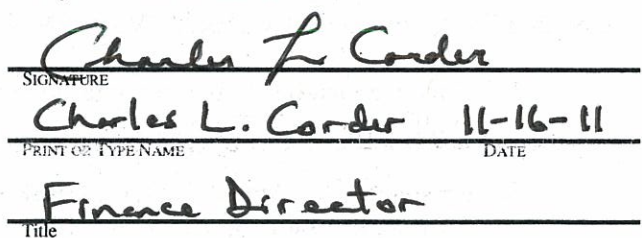 Charles L Corder
SIGNATURE
Charles L. Corder 11-16-11
PRINT OR TYPE NAME DATE
Finance Director
Title